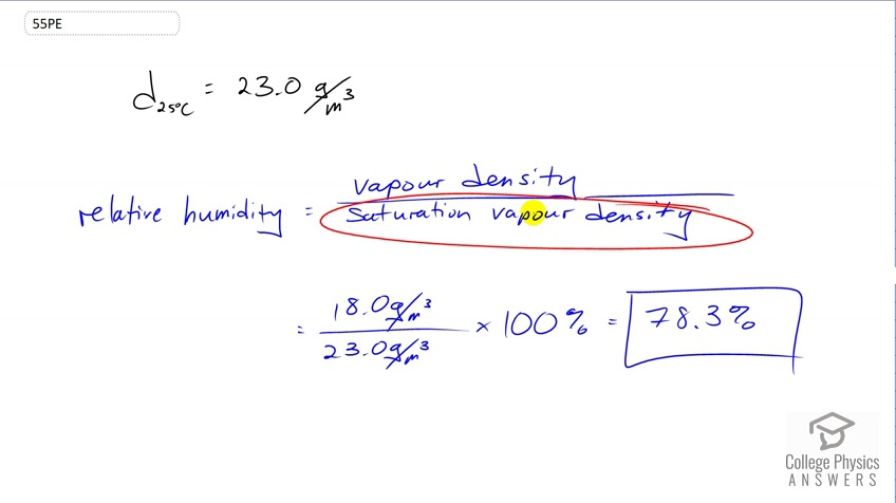 55PE
d25°C = 23.0 g/m³
relative humidity = vapour density / saturation vapour density
= 18.0g/m³ / 23.0g/m³ × 100% = 78.3%
College Physics
ANSWERS